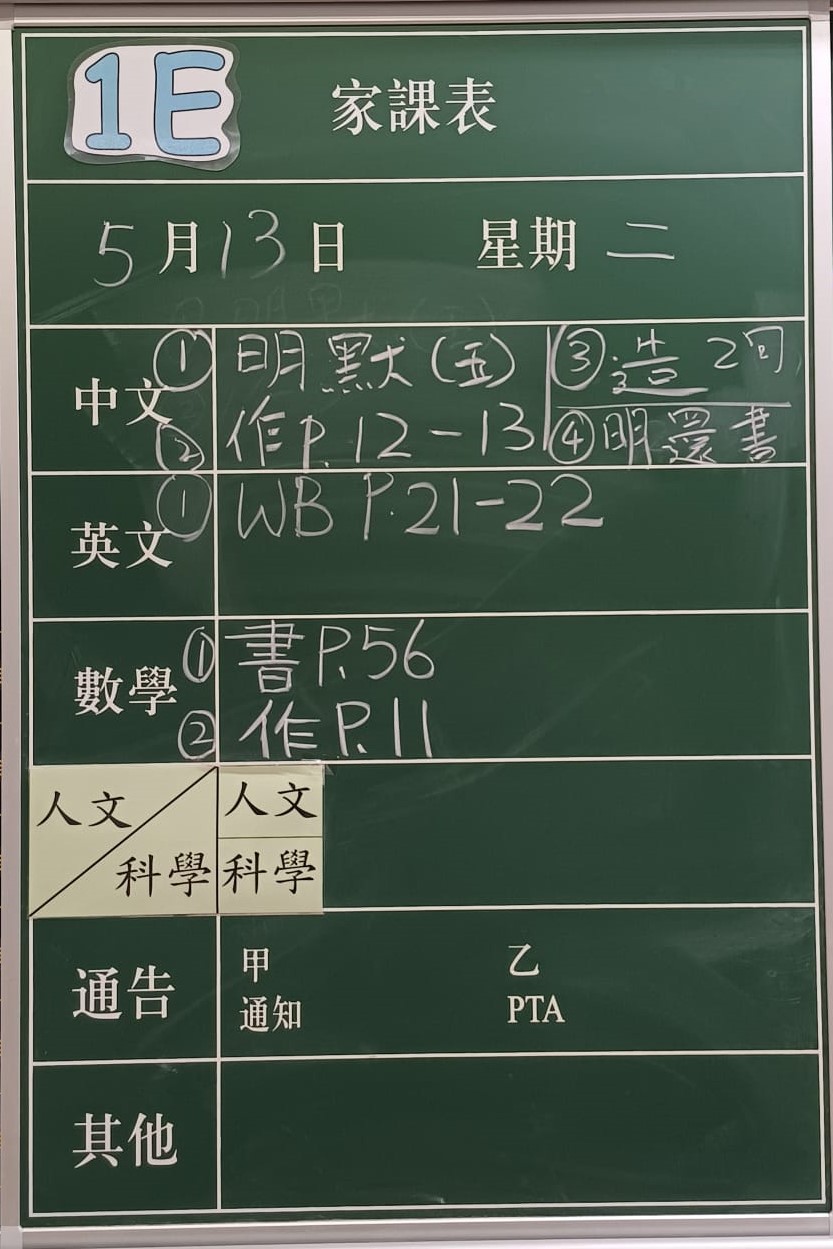 1E 家課表
5月13日 星期二
中文 ① 明默(五) ③ 造2句
② 作P.12-13 ④ 明還書
英文 ① WB P.21-22
數學 ① 書P.56
② 作P.11
人文 人文
科學 科學
通告 甲 乙
通知 PTA
其他